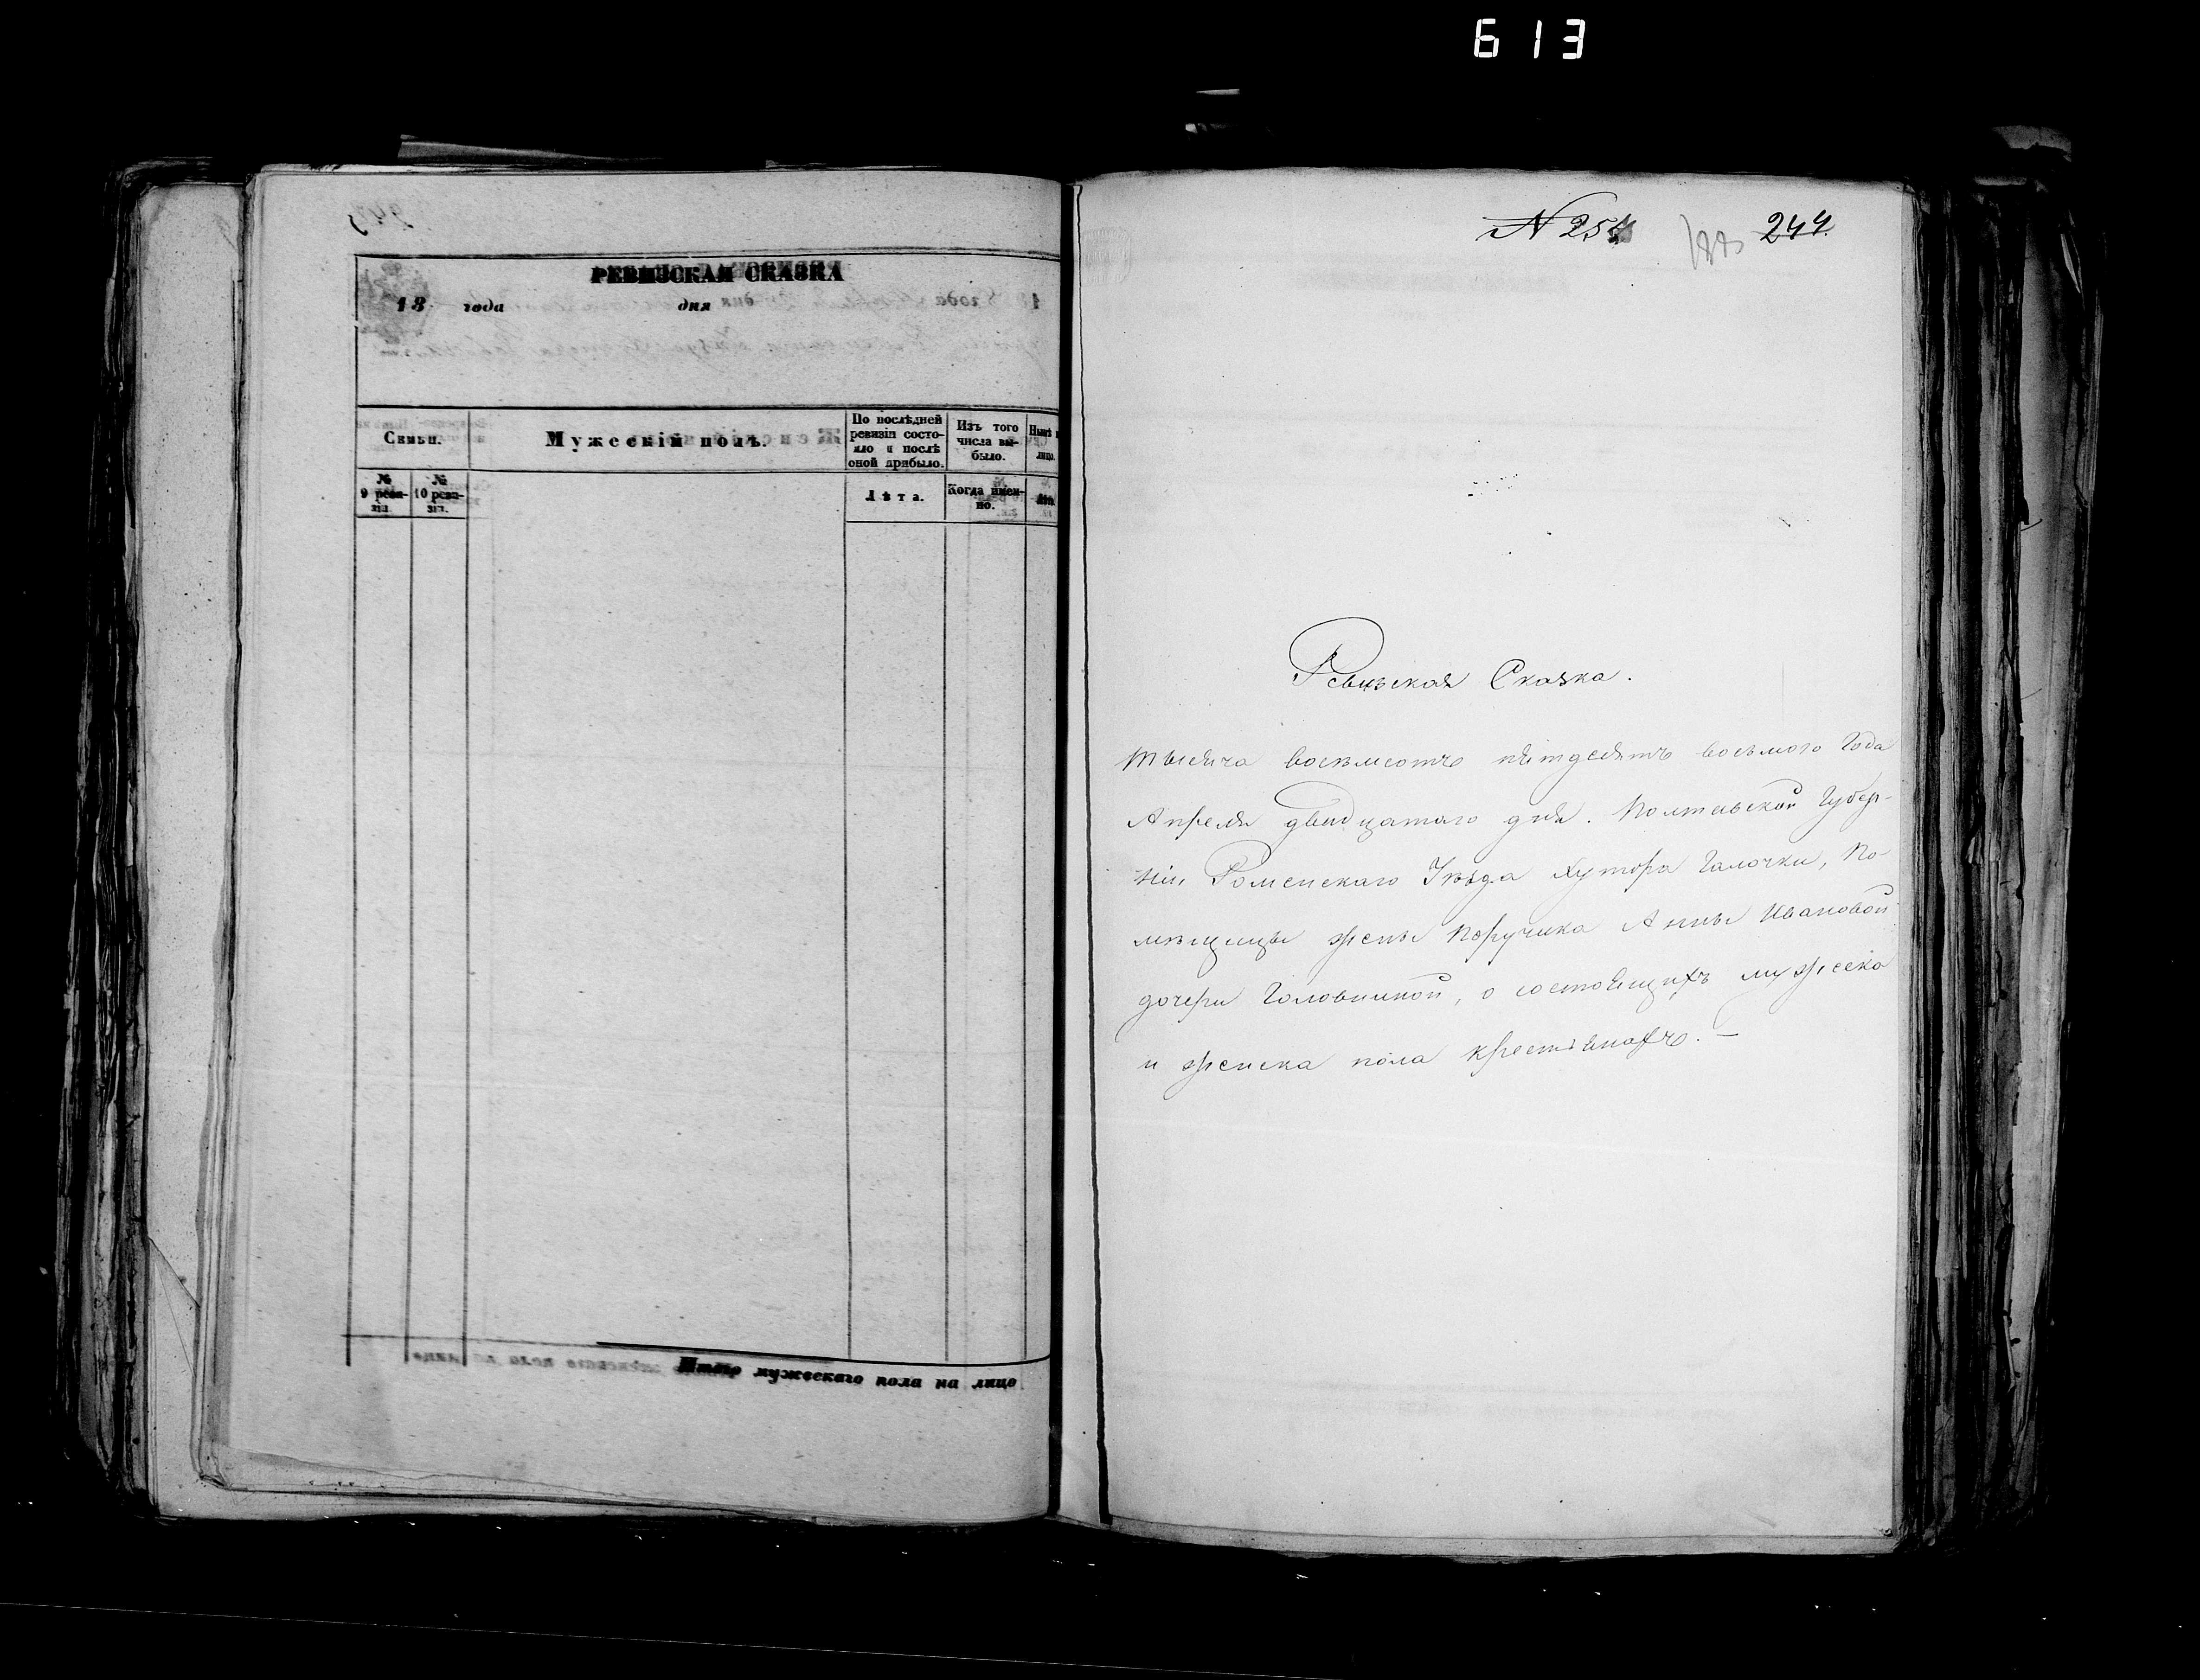 613
РЕВИЗСКАЯ СКАЗКА
18 года дня
Семьи.
Мужескій полъ.
По послѣдней
ревизіи состо-
яло и послѣ
оной прибыло.
Изъ того
числа вы-
было.
Нынѣ
лицо.
№
9 реви-
зіи.
№
10 реви-
зіи.
Лѣта.
Когда имен-
но.
Итого мужескаго пола на лицо
N 254
244.
Ревизская Сказка.
тысяча восемьсотъ пятдесятъ восьмого года
Апреля двадцатаго дня. Полтавской Губер-
ніи, Роменскаго Уѣзда Хутора Галочки, По
мѣщицы жены Поручика Анны Ивановой
дочери Головниной, о состоящихъ мужеска
и женска пола крестьянахъ. —